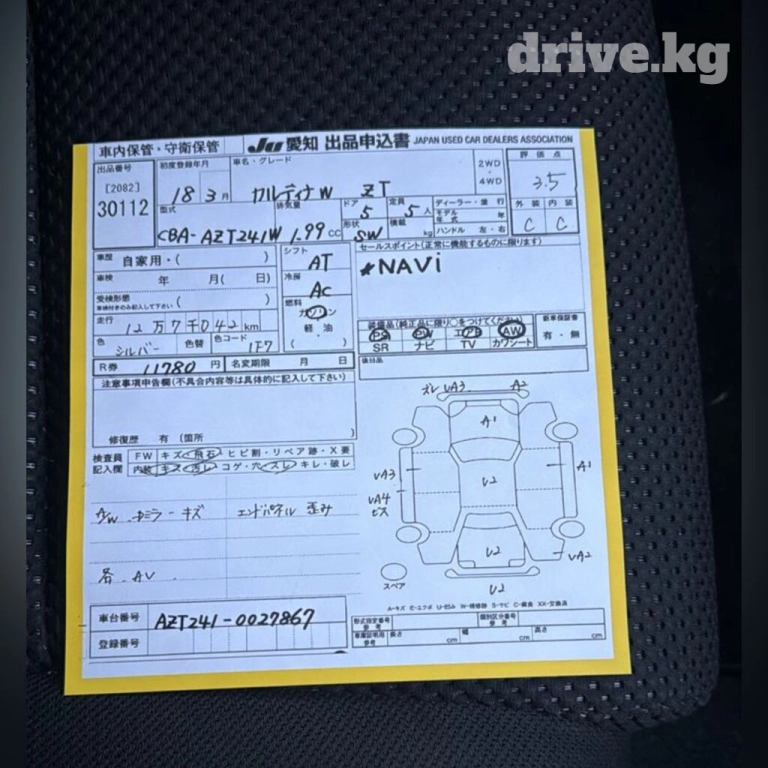 drive.kg
車内保管・守衛保管 JU 愛知 出品申込書 JAPAN USED CAR DEALERS ASSOCIATION
出品番号 初度登録年月 車名・グレード 2WD ・ 4WD 評価点
[2082] 30112 18 3月 カルディナW ZT 3.5
型式 排気量 ドア 5 定員 5人 ディーラー・並行 外装 内装
CBA-AZT241W 1.99 CC 形状 SW 積載 kg モデル年式 年 ハンドル 左・右 C C
車歴 自家用・( ) シフト AT セールスポイント(正常に機能するものに限ります)
車検 年 月( 日) 冷房 AC *NAVi
受検形態 ( )
車検付きのみ記入して下さい
燃料 ガソリン ・ 軽油 ( )
走行 12万7千042km
装備品(純正品に限り○をつけてください) 新車保証書
PS PW エアB AW 有・無
SR ナビ TV カワシート
色 シルバー 色替 色コード 1F7
R券 11780円 名変期限 月 日 後日品
注意事項申告欄(不具合内容等は具体的に記入して下さい)
修復歴 有 (箇所 )
検査員記入欄 FW キズ・飛石・ヒビ割・リペア跡・X要
内装 キズ・汚レ・コゲ・穴・スレ・キレ・破レ
A/W ・ ドミラーキズ エンドパネル 歪み
各 AU
ズレ UA3 A2
A1
UA3 U2 A1
UA4
ビス
U2 UA2
スペア U2
A-キズ E-エクボ U-凹み W-補修跡 S-サビ C-腐食 XX-交換済
車台番号 AZT241-0027867
登録番号
型式指定番号 参考 類別区分番号 参考
車庫証明用 参考 長さ cm 幅 cm 高さ cm